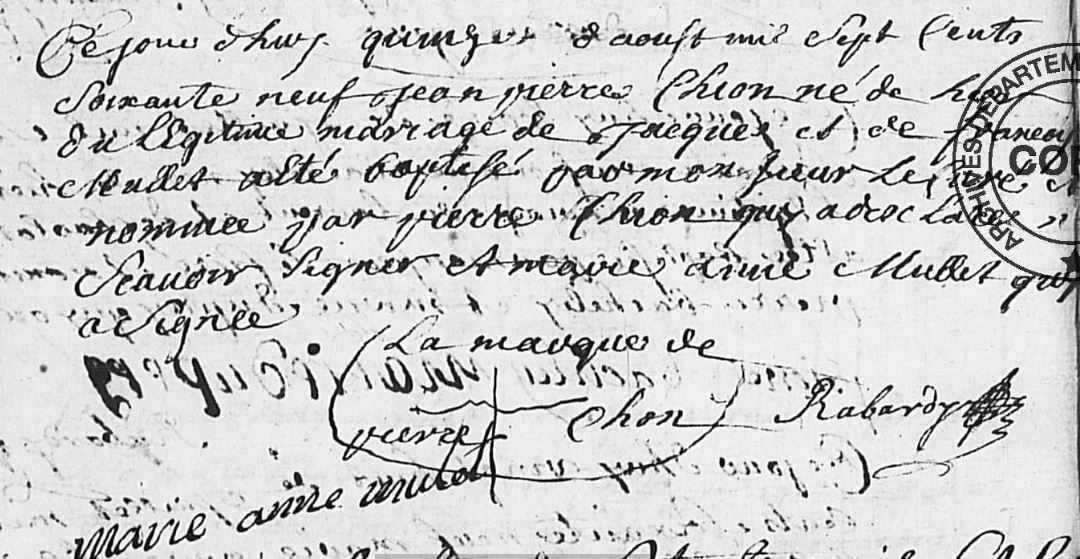 Ce jourdhuy quinze daoust mil Sept Cents
Soixante neuf jean pierre Thion né de
du legitime mariage de Jacques et de francoi
Mullet a eté baptisé par monsieur Le Curé
nommée par pierre Thion quy a declaré
Scauoir Signer et marie anne Mullet quy
a Signée
La marque de
pierre Thion
Rabardy
marie anne mulet
ARCHIVES DEPARTEM
CO